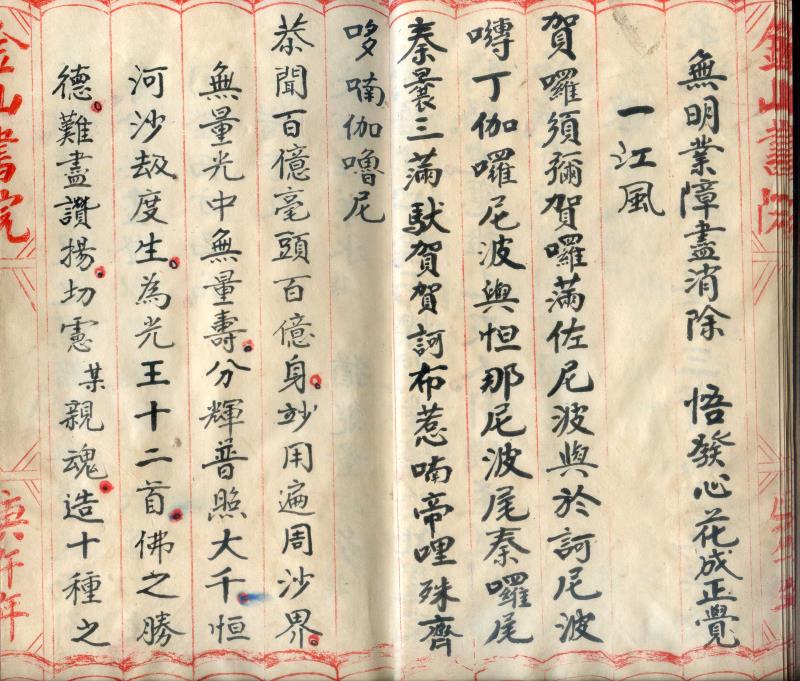 無明業障盡消除 悟發心花成正覺
一江風
賀囉須彌賀囉滿佐尼波與於訶尼波
囀丁伽囉尼波與怛那尼波尾秦囉尾
秦曩三滿馱賀賀訶布惹喃帝哩殊齊
哆喃伽嚕尼
恭聞百億毫頭百億身玅用遍周沙界
無量光中無量壽分輝普照大千恒
河沙刼度生為光王十二首佛之勝
德難盡讚揚切慮某親魂造十種之
金山書院
庚午年